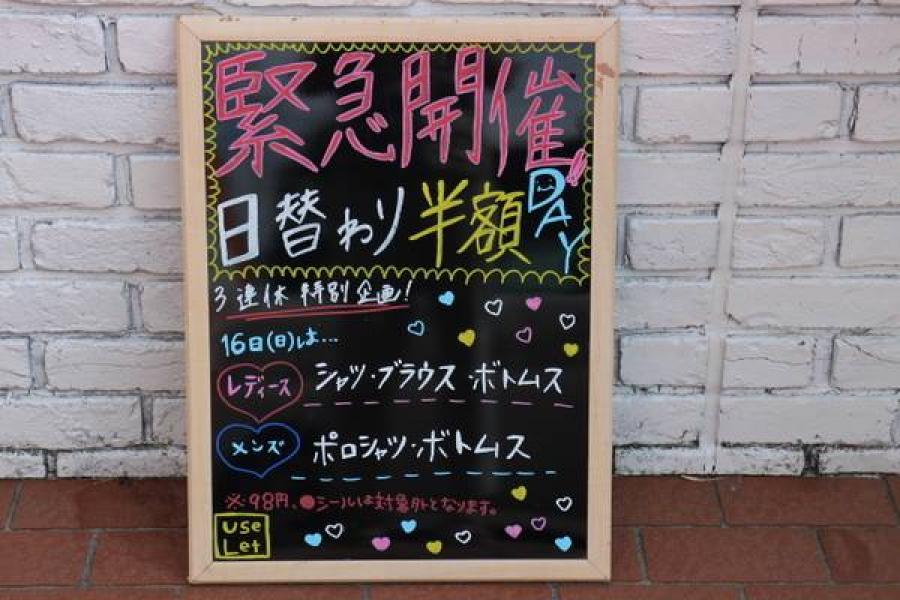 緊急開催!!
日替わり半額DAY
3連休 特別企画!
16日(日)は...
レディース シャツ・ブラウス・ボトムス
メンズ ポロシャツ・ボトムス
※98円、●シールは対象外となります。
use
Let